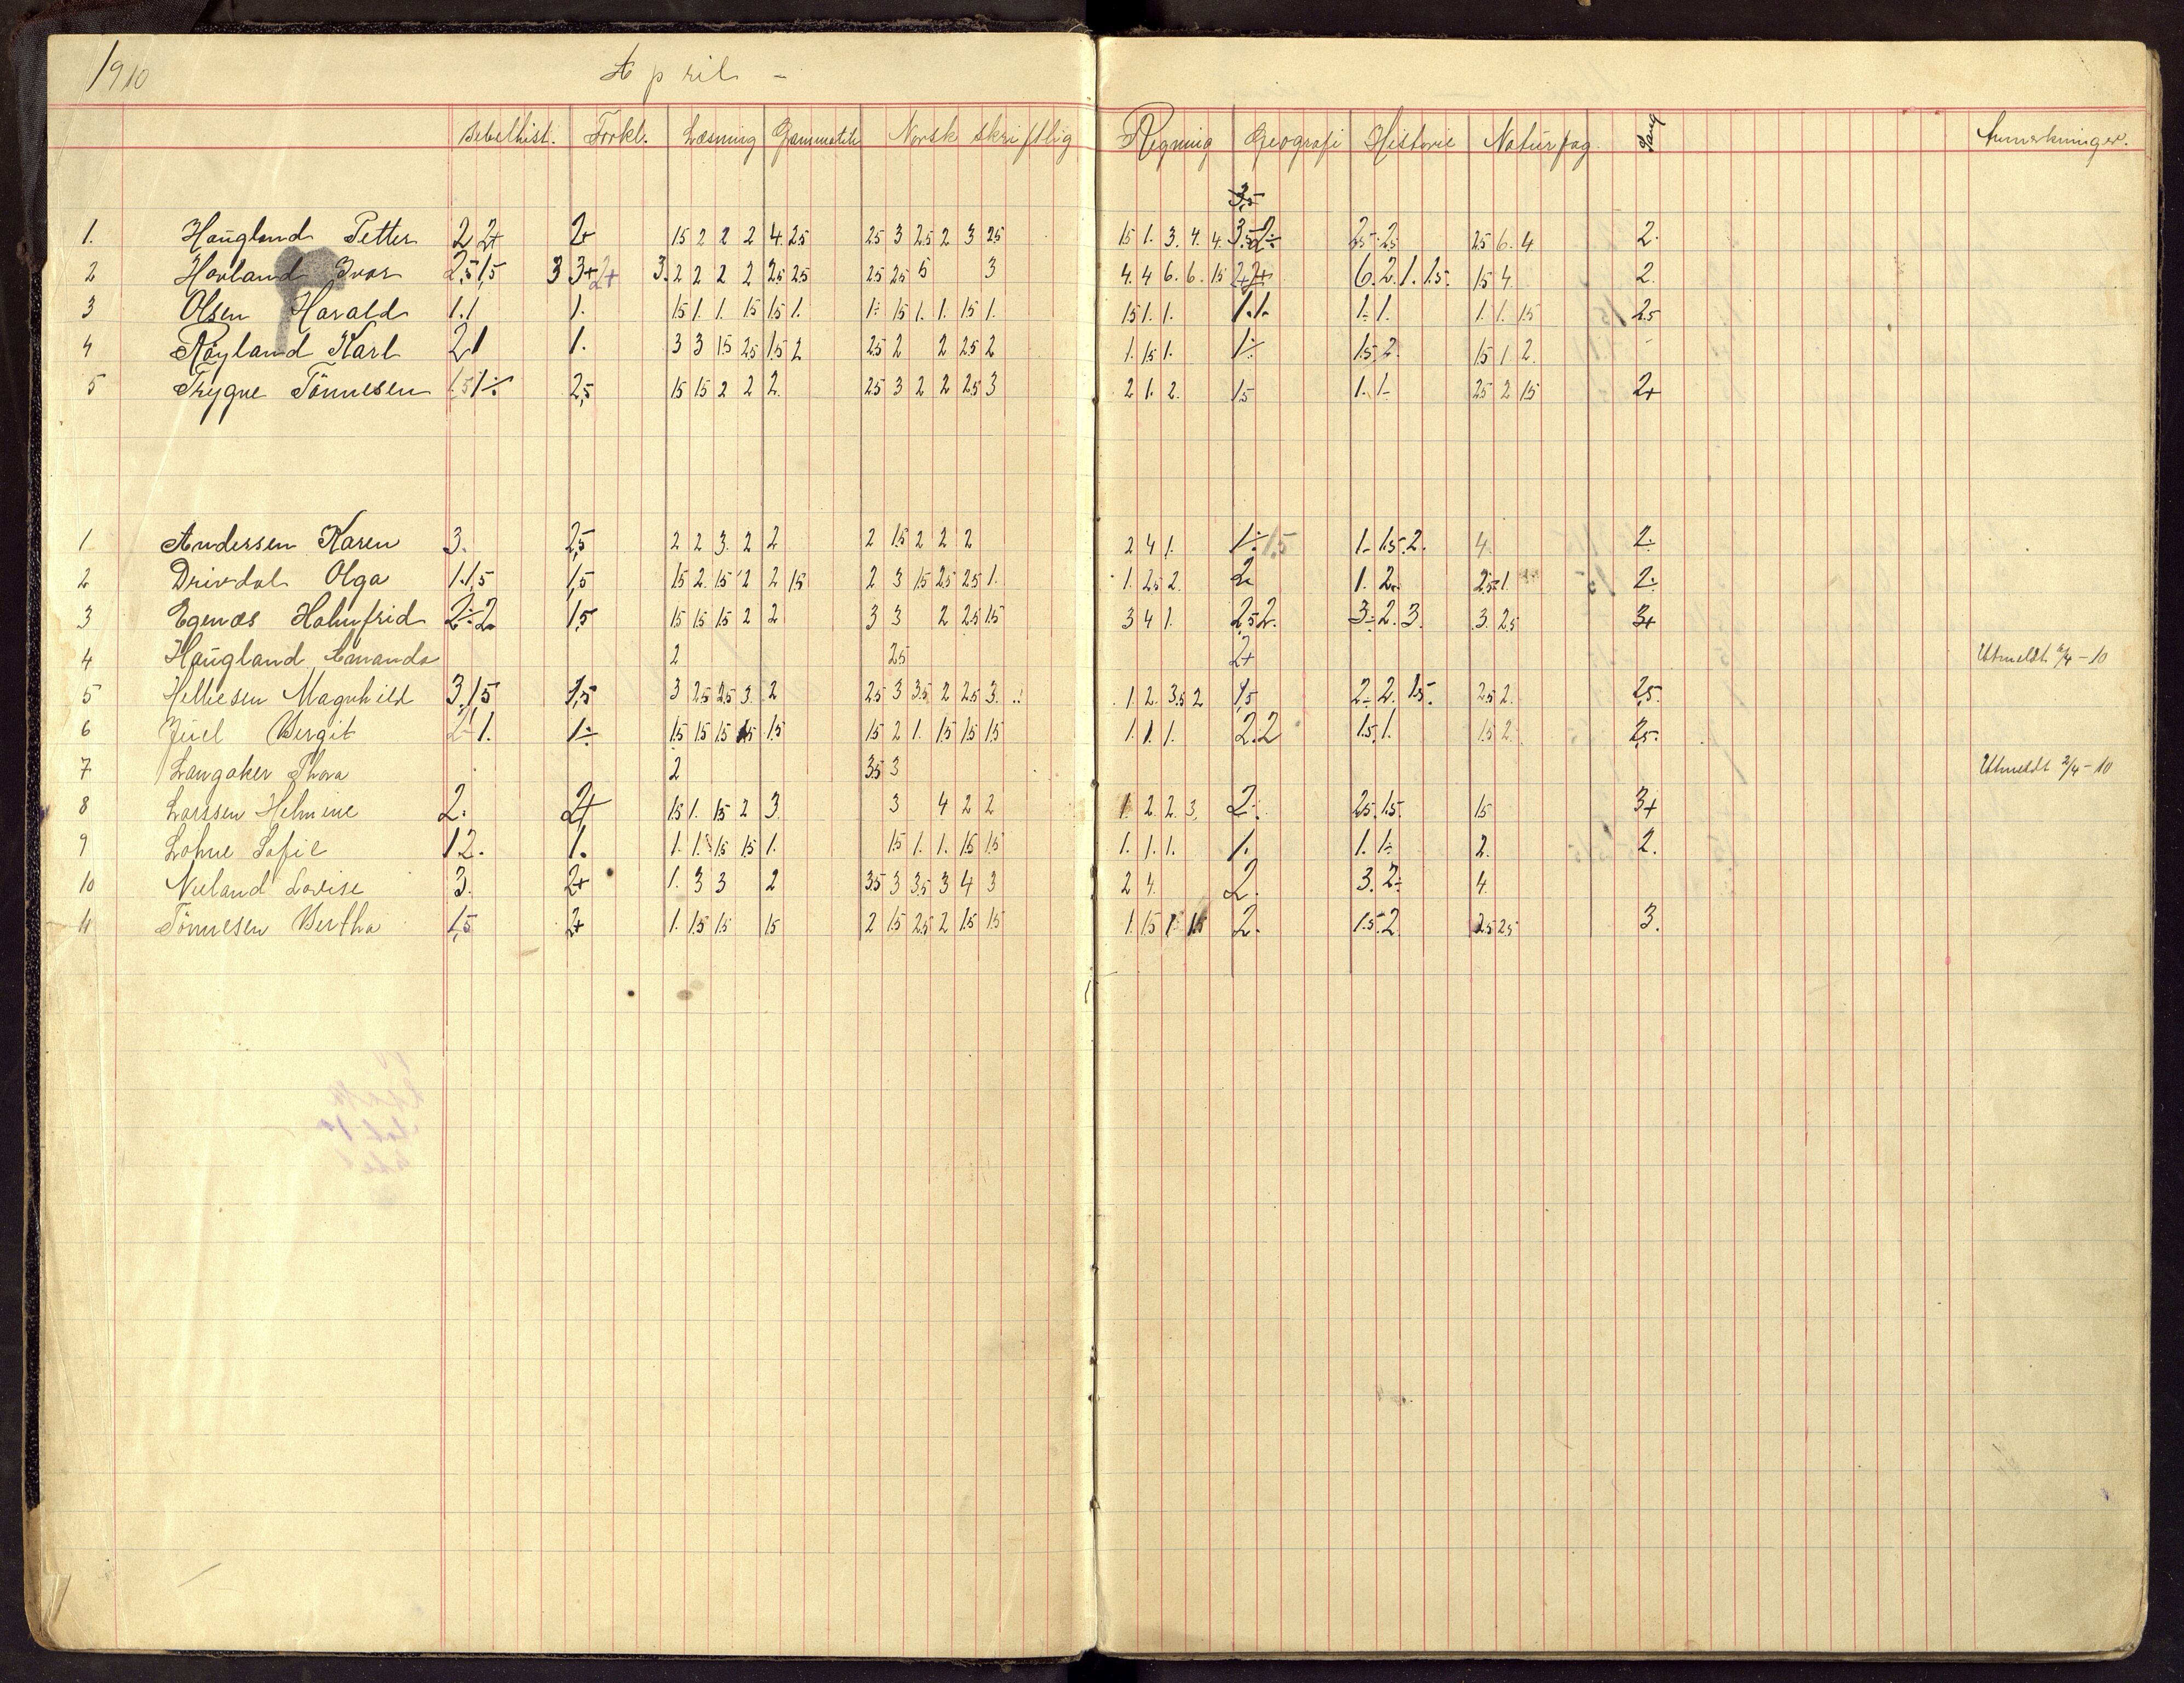 1910 April -
Bibelhist. Forkl. Læsning Grammatik Norsk skriftlig Regning Geografi Historie Naturfag. Sang Anmerkninger.
3,5
1. Haugland Petter 2 2+ 2+ 15 2 2 2 4. 25 25 3 25 2 3 25 15 1. 3. 4. 4. 3.5 2÷ 25. 25 25 6. 4 2.
2 Hovland Ivar 2,5 1,5 3 3+ 2+ 3. 2 2 2 2 25 25 25 25 5 3 4. 4 6. 6. 15 2+ 2+ 6. 2. 1. 1.5. 15 4. 2.
3 Olsen Harald 1.1 1. 15 1. 1. 15 15 1. 1÷ 15 1. 1. 15 1. 15 1. 1. 1. 1. 1. 1. 1. 1. 15 25
4 Røyland Karl 2 1 1. 3 3 15 25 15 2 25 2 2 25 2 1. 15 1. 1÷ 15. 2. 15 1 2.
5 Trygve Tönnesen 1,5 1÷ 2,5 15 15 2 2 2. 25 3 2 2 25 3 2 1. 2. 15 1. 1. 25 2 15 2+
1 Andersen Karen 3. 2,5 2 2 3. 2 2 2 15 2 2 2 2 4 1. 1÷ 1.5 1. 1.5. 2. 4. 2÷
2 Drivdal Olga 1.1,5 1,5 15 2. 15 2 2 15 2 3 15 25 25 1. 1. 25 2. 2 1. 2. 25 1. 2÷
3 Egenæs Holmfrid 2÷ 2 1,5 15 15 15 2 2 3 3 2 25 15 3 4 1. 2,5 2. 3÷ 2. 3. 3. 25 3+
4 Haugland Amanda 2 25 2+ Utmeldt /4 - 10
5 Helliesen Magnhild 3. 1,5 1,5 3 25 25 3. 2 25 3 35 2 25 3. 1. 2. 35 2 1,5 2÷ 2. 15. 25 2. 2,5.
6 Juel Bergit 2 1. 1÷ 15 15 15 15 15 15 2 1. 15 15 15 1. 1. 1. 2.2 1.5. 1. 15 2. 2,5.
7 Langaker Thora 2 35 3 Utmeldt 2/4 - 10
8 Larssen Helmine 2. 2+ 15 1. 15 2 3. 3 4 2 2 1 2. 2. 3. 2. 25. 15. 15 3+
9 Lohne Sofie 1 2. 1. 1. 1. 15 15 1. 15 1. 1. 15 15 1. 1. 1. 1. 1. 1÷ 2. 2.
10 Nuland Lovise 3. 2+ 1. 3 3 2 35 3 35 3 4 3 2 4. 2. 3. 2÷ 4.
11 Tönnesen Bertha 1,5 2+ 1. 15 15 15 2 15 25 2 15 15 1. 15 1. 15 2. 1.5. 2 25 25 3.